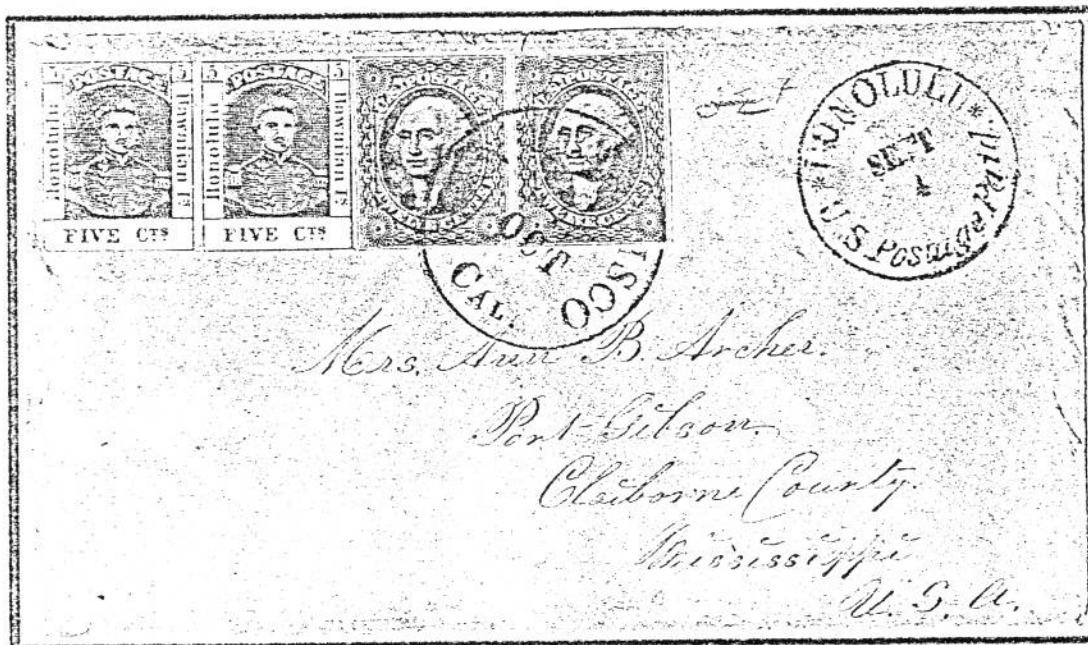 5 POSTAGE 5
Honolulu
Hawaiian Is
FIVE CTS
5 POSTAGE 5
Honolulu
Hawaiian Is
FIVE CTS
U.S. POSTAGE
TEN CENTS
U.S. POSTAGE
TEN CENTS
OCT
CAL.
*HONOLULU*
SEPT
1
U.S. Postage Paid
Mrs. Ann B. Archer.
Port-Gibson.
Claiborne County.
Mississippi
U. S. A.